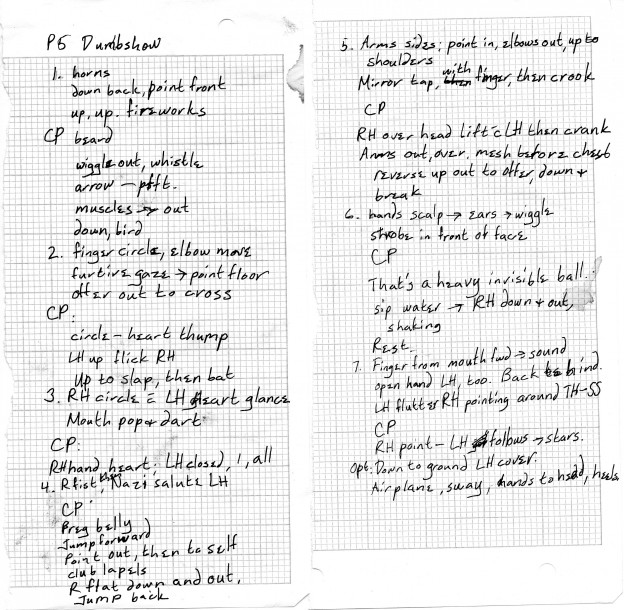 P5 Dumbshow
1. horns
down back, point front
up, up. fireworks
CP beard
wiggle out, whistle
arrow — pfft.
muscles → out
down, bird
2. finger circle, elbow move
furtive gaze → point floor
offer out to cross
CP:
circle – heart thump
LH up flick RH
Up to slap, then bat
3. RH circle = LH heart glance
Mouth pop + dart
CP:
RHhand heart; LH closed, 1, all
4. R fist, then Nazi salute LH
CP
Preg belly
Jump forward
Point out, then to self
club lapels
R flat down and out,
Jump back
5. Arms sides; point in, elbows out, up to
shoulders
Mirror tap, with finger, then crook
CP
RH over head lift c LH then crank
Arms out, over. mesh before chest
reverse up out to offer, down +
break
6. hands scalp → ears → wiggle
strobe in front of face
CP
That's a heavy invisible ball..
sip water → RH down + out,
shaking
Rest.
7. Finger from mouth fwd → sound
open hand LH, too. Back behind.
LH flutter RH pointing around TH-SS
CP
RH point – LH follows → stars.
Opt: Down to ground LH cover.
Airplane, sway, hands to head, heels